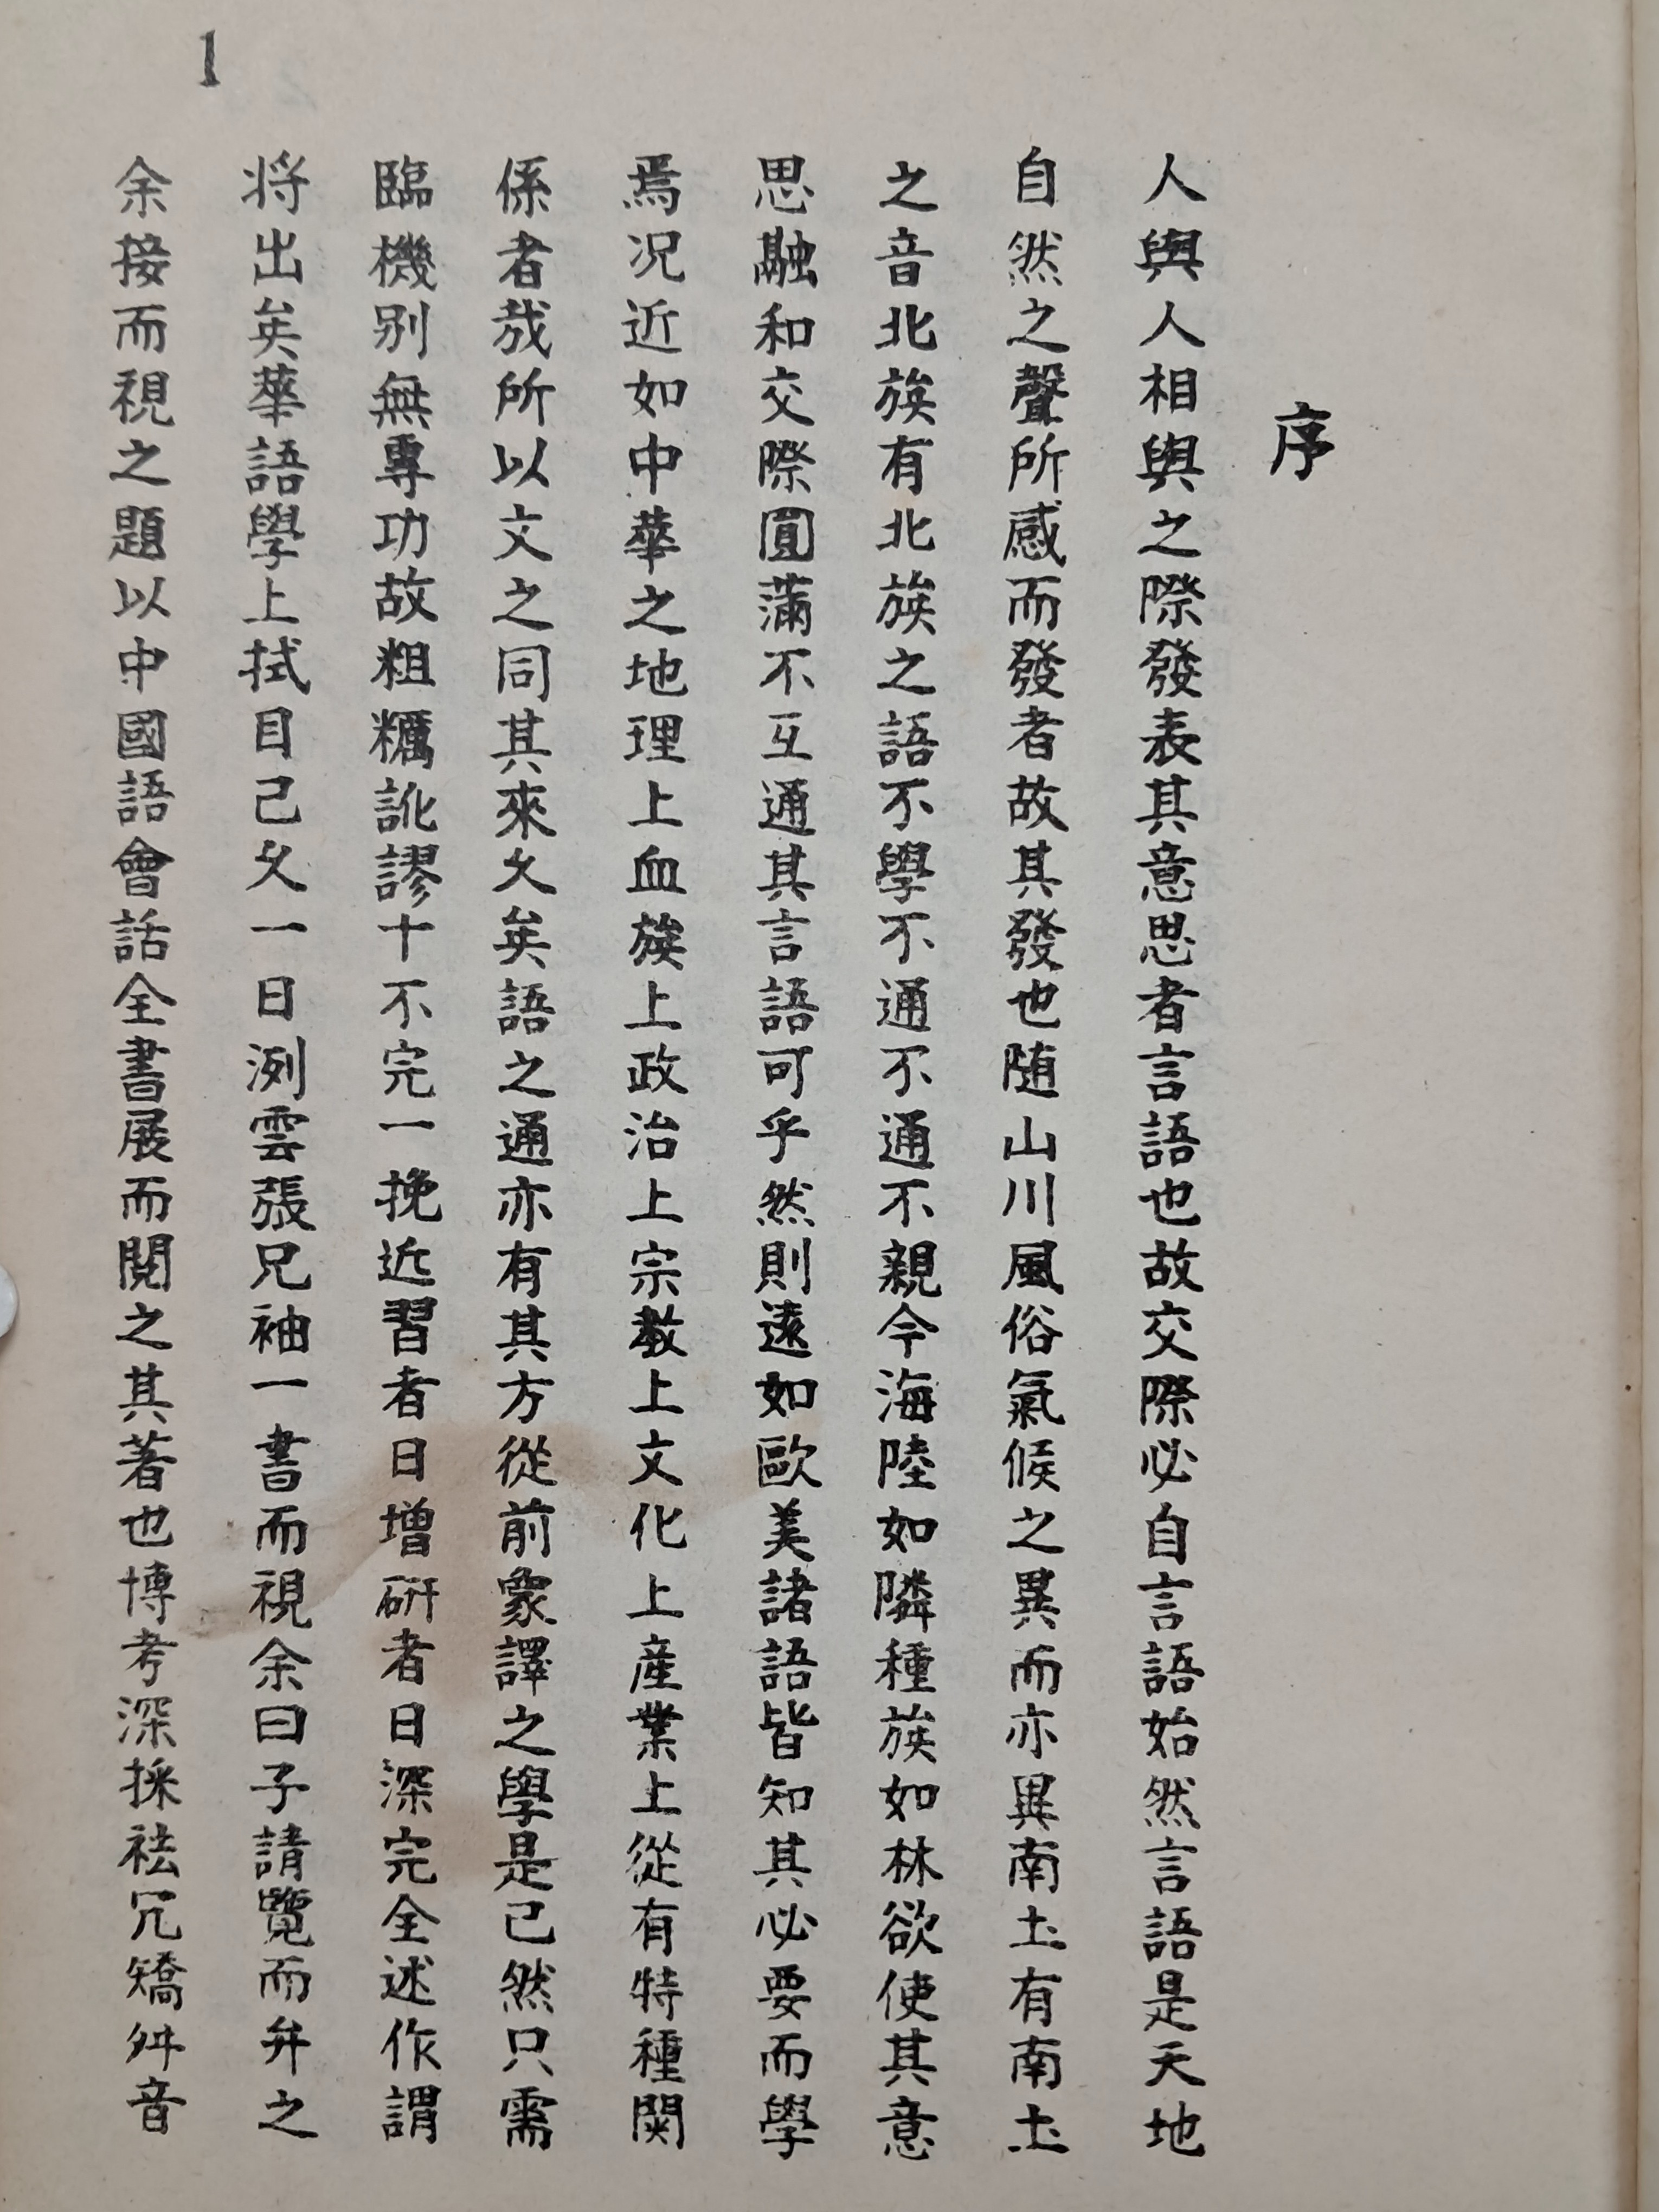 1
序
人與人相與之際發表其意思者言語也故交際必自言語始然言語是天地
自然之聲所感而發者故其發也随山川風俗氣候之異而亦異南土有南土
之音北族有北族之語不學不通不通不親今海陸如隣種族如林欲使其意
思融和交際圓滿不互通其言語可乎然則遠如歐美諸語皆知其必要而學
焉况近如中華之地理上血族上政治上宗教上文化上産業上從有特種関
係者哉所以文之同其來久矣語之通亦有其方從前象譯之學是已然只需
臨機别無專功故粗糲訛謬十不完一挽近習者日增研者日深完全述作謂
将出矣華語學上拭目己久一日洌雲張兄袖一書而視余曰子請覽而弁之
余接而視之題以中國語會話全書展而閱之其著也博考深採祛冗矯舛音